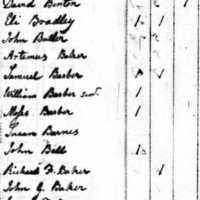 David Benton 1
Eli Bradley 1 1
John Butler
Artemus Baker
Samuel Barber 1
William Barber 1
Moses Barber 1
Susan Barnes
John Ball 1
Richard F. Baker 1
John G. Baker